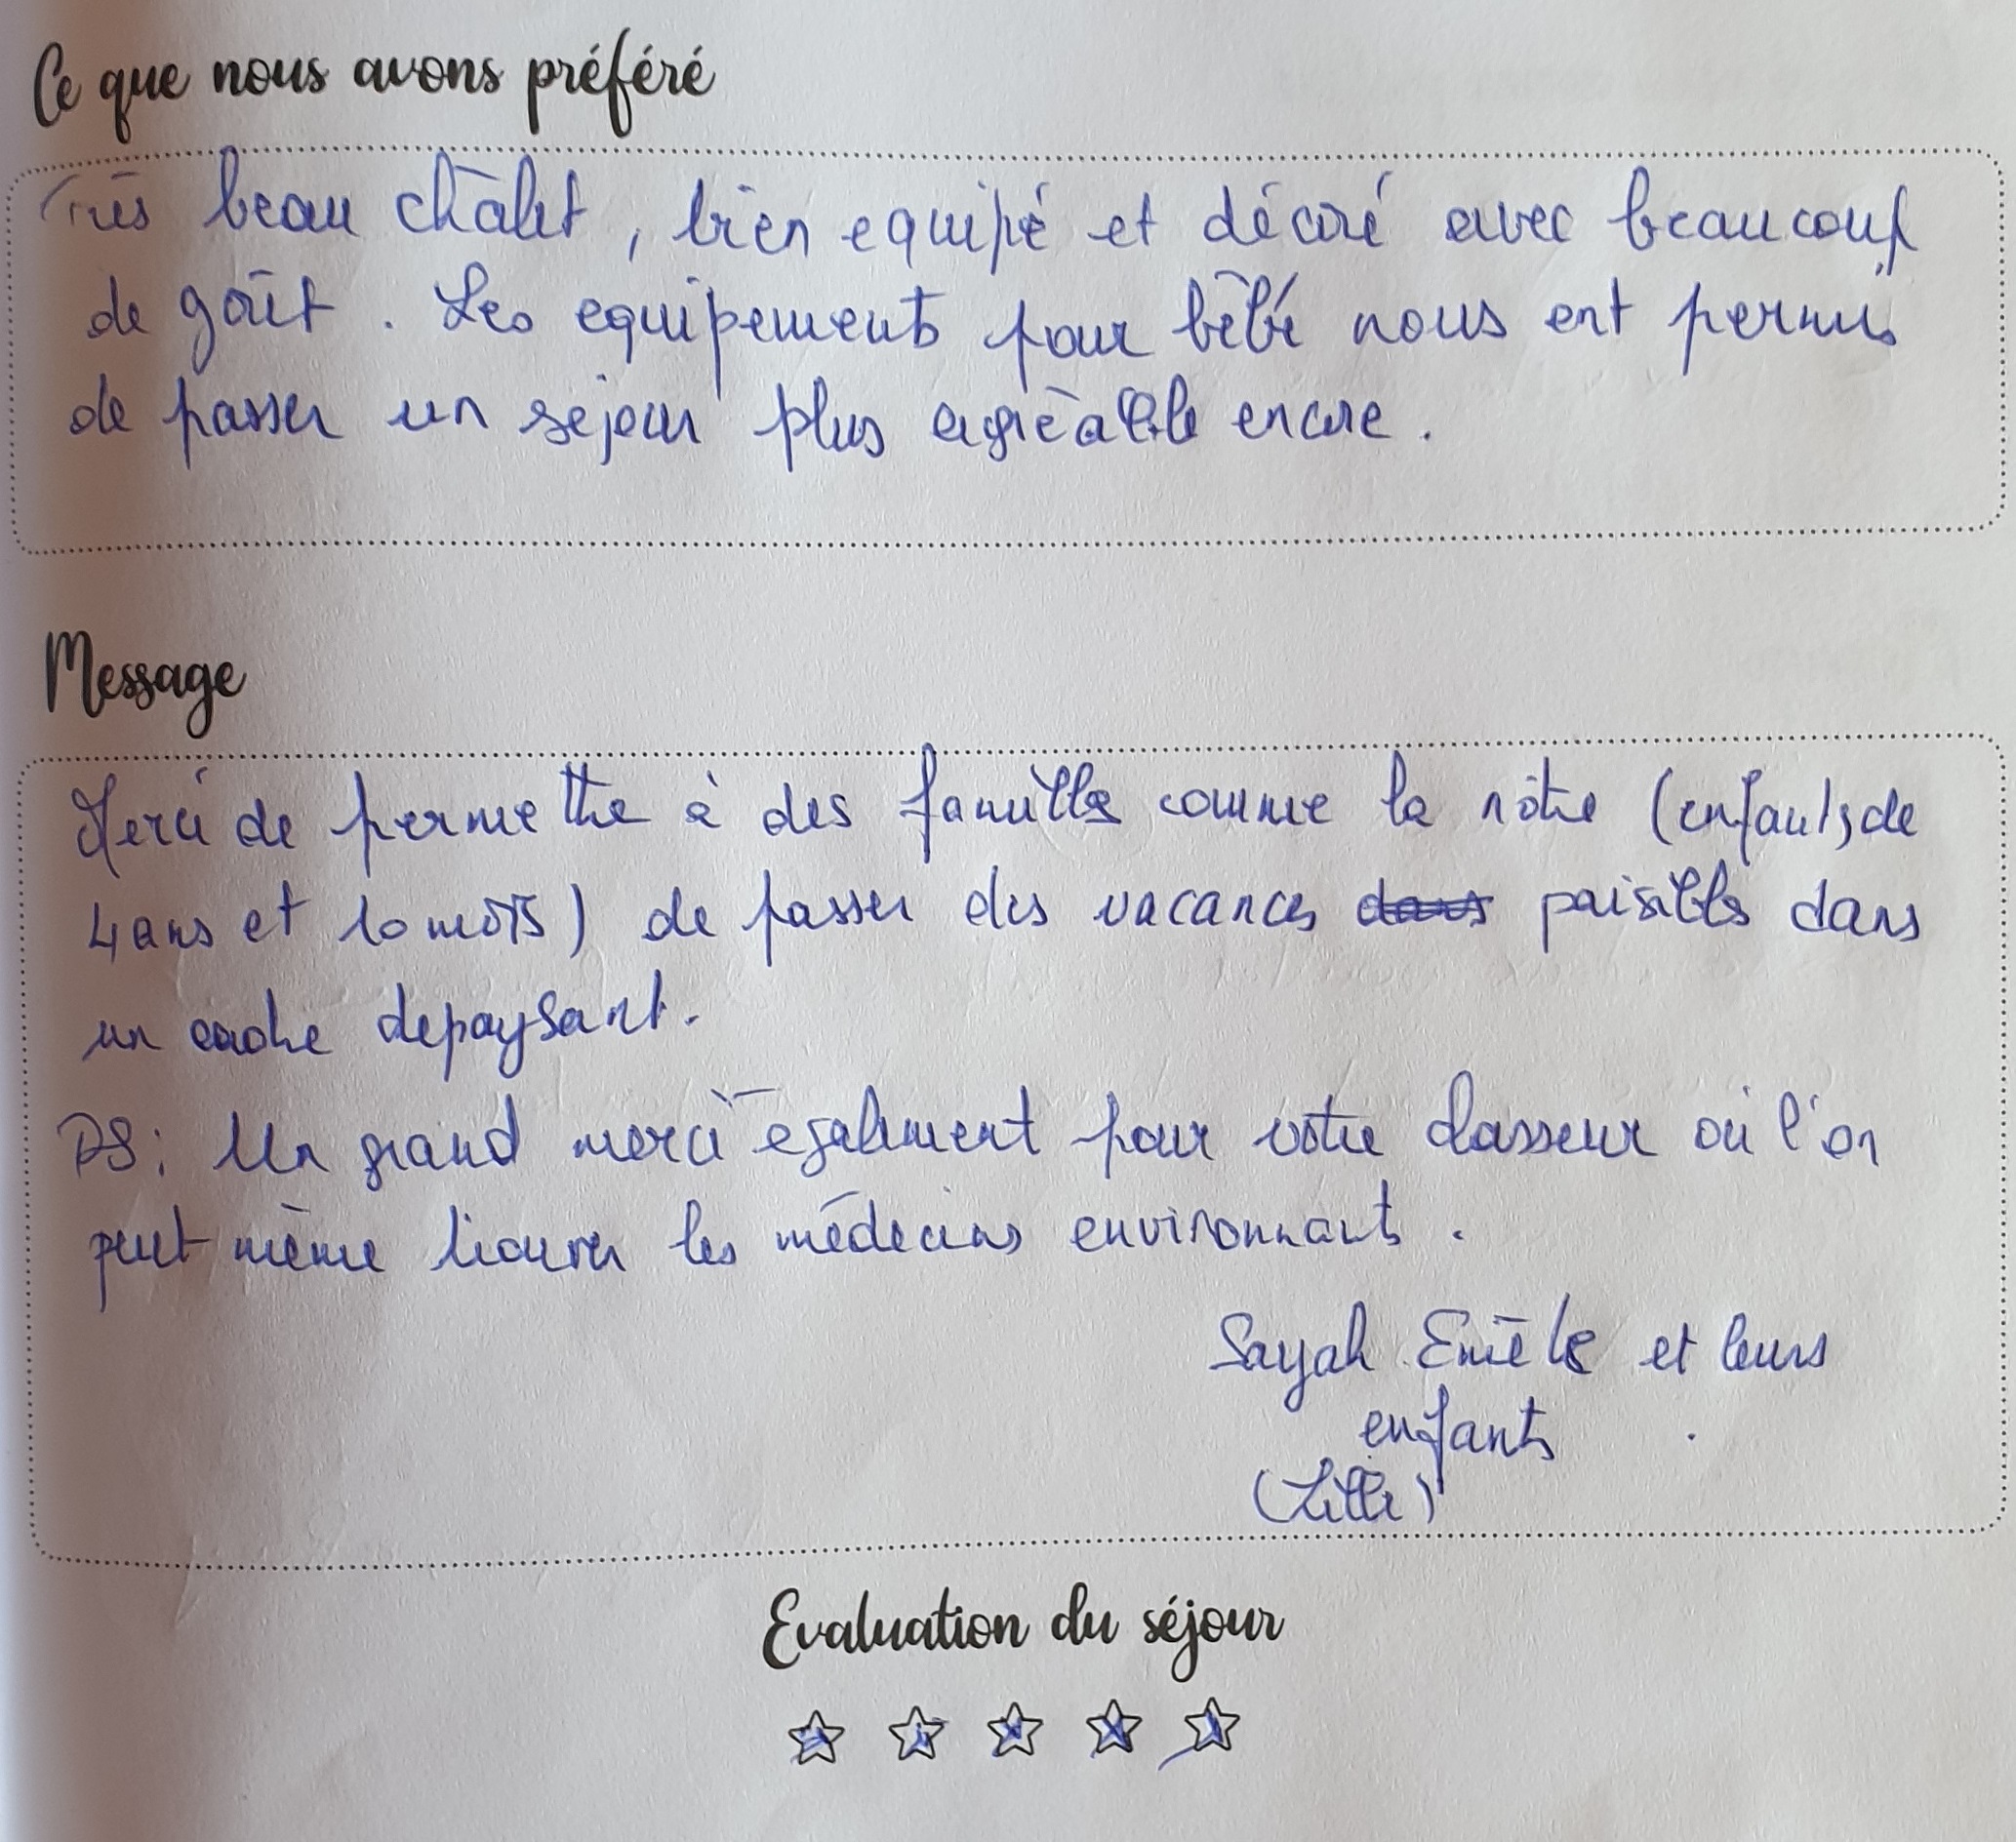 Ce que nous avons préféré
Très beau châlet, bien equipé et décoré avec beaucoup
de goût. Les equipements pour bébé nous ont permis
de passer un sejour plus agréable encore.
Message
Merci de permettre à des familles comme la nôtre (enfants de
4 ans et 10 mois) de passer des vacances dans paisibles dans
un cadre depaysant.
PS: Un grand merci également pour votre classeur où l'on
peut même trouver les médecins environnants.
Sayah et leurs
enfants
(Lille)
Evaluation du séjour